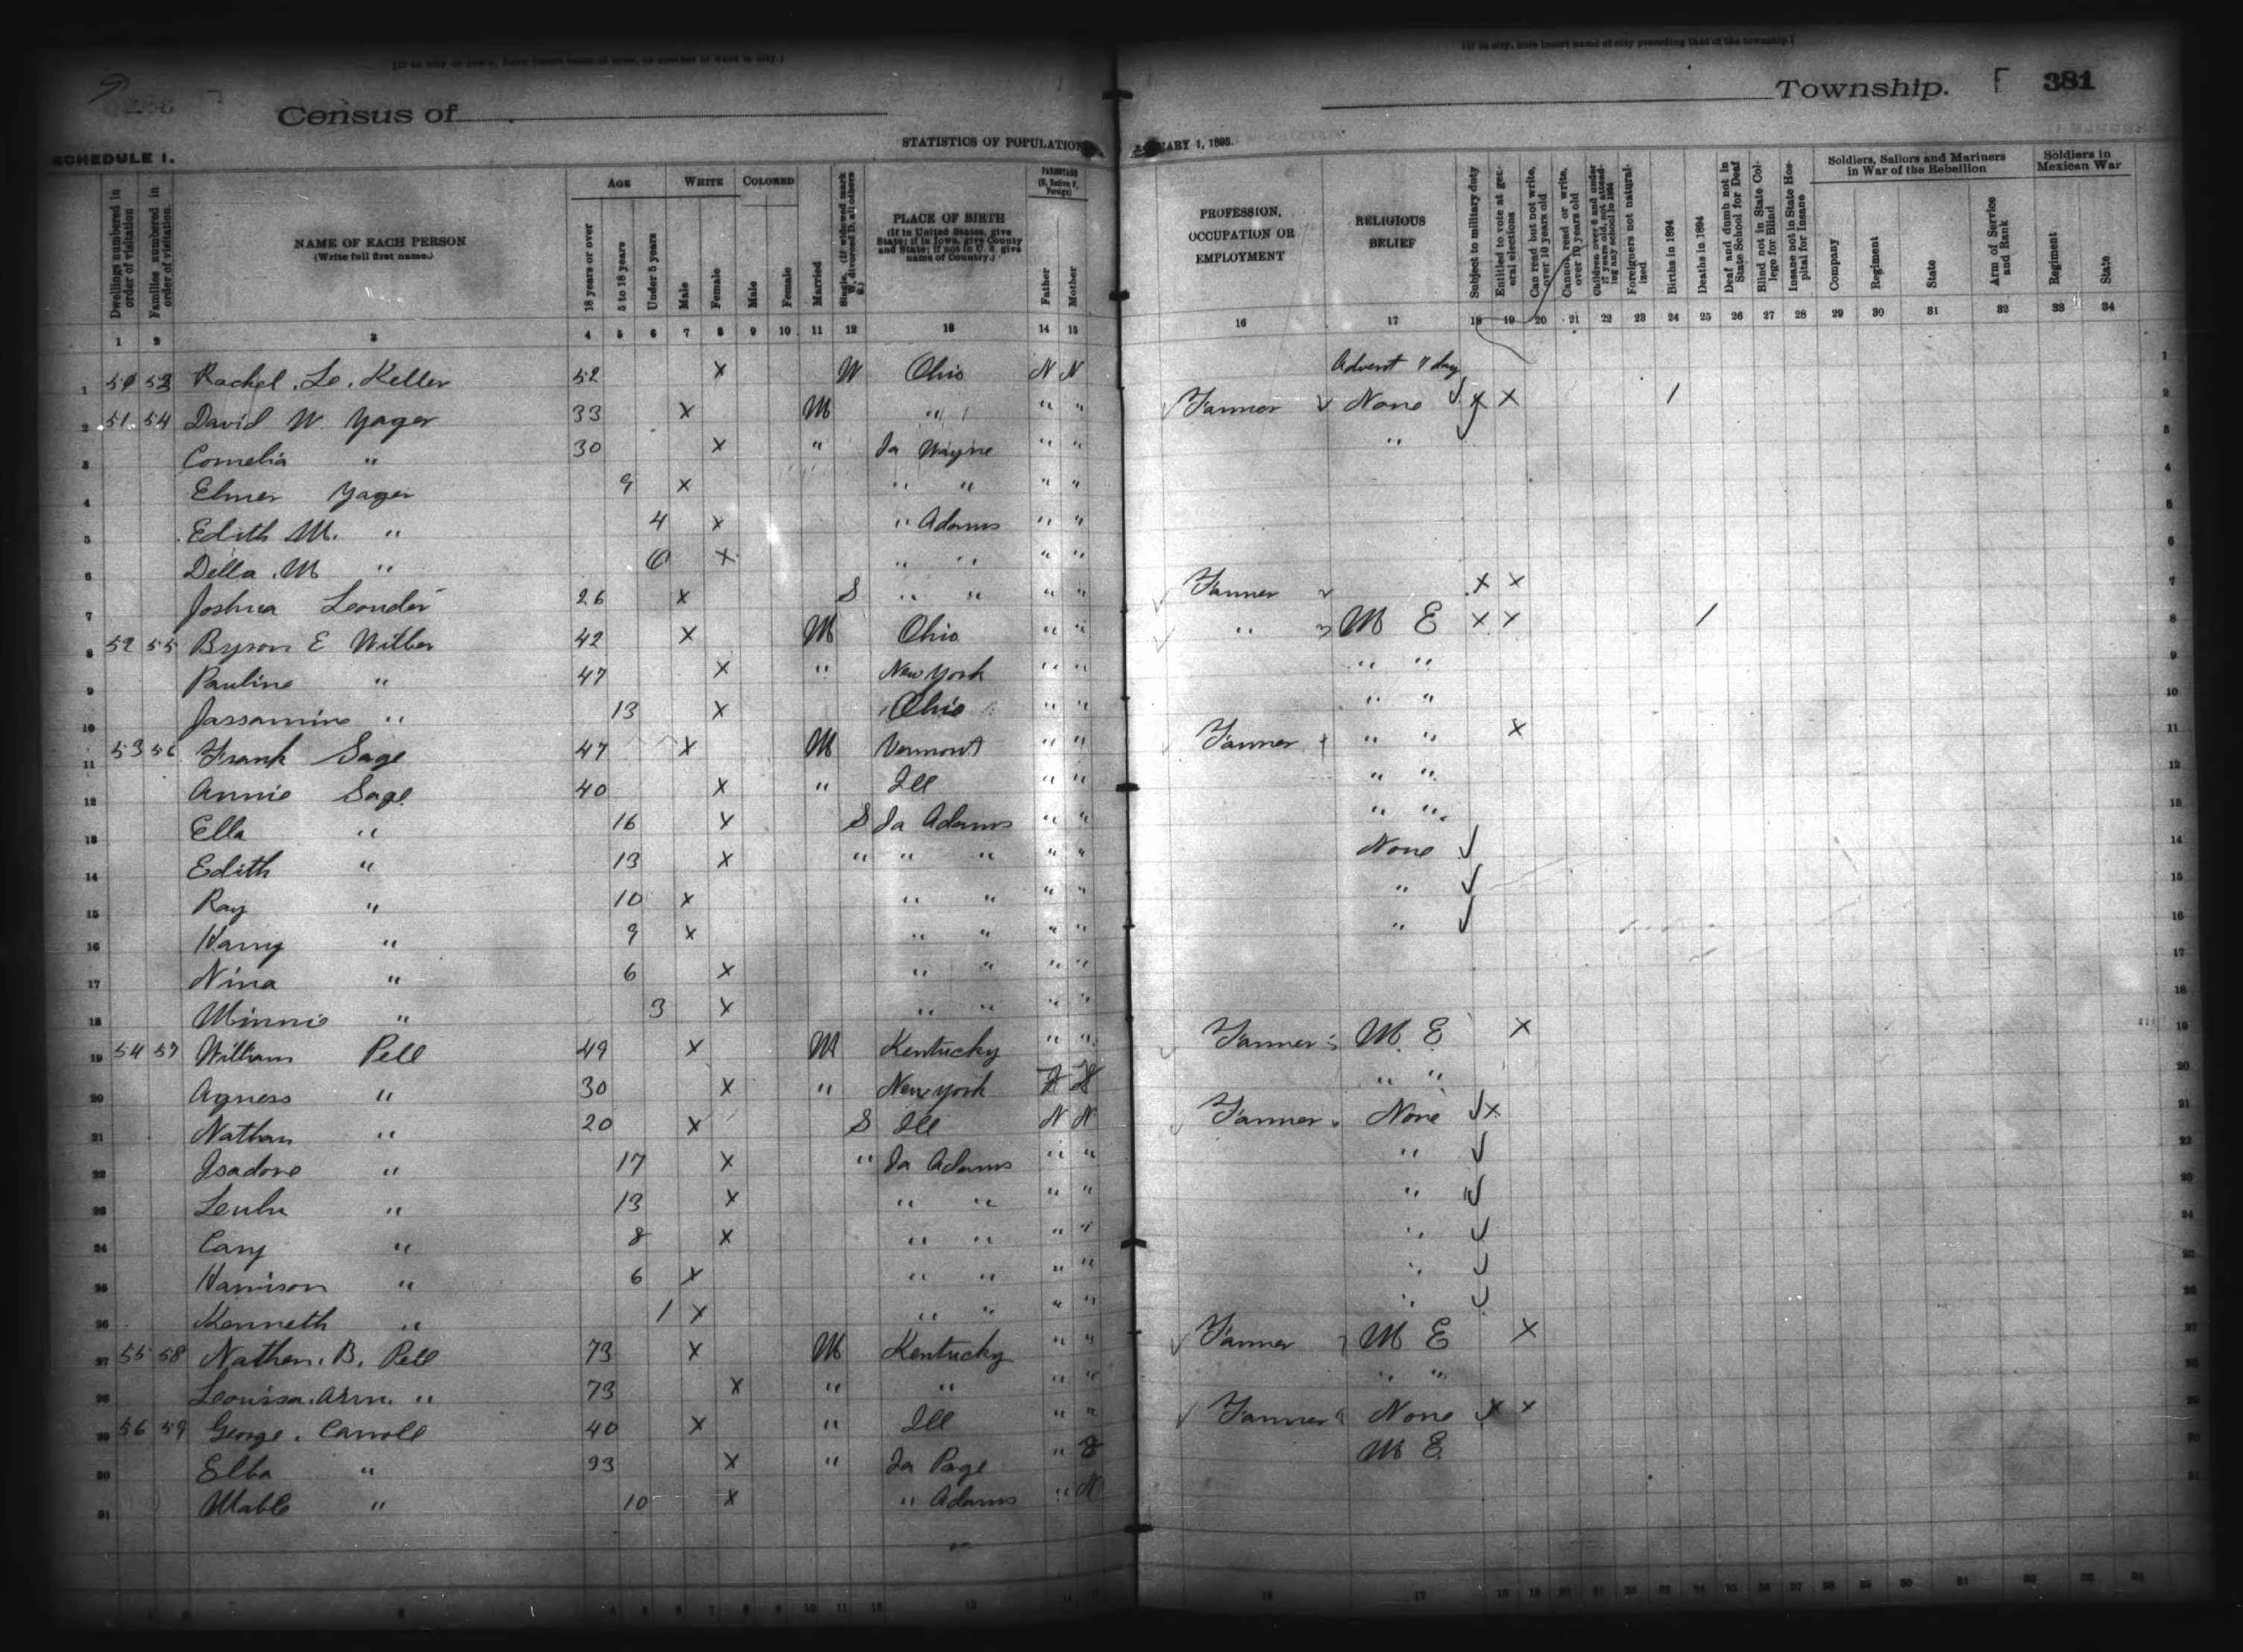 (If in city, here insert name of city preceding that of the township.)
Census of
Township. 381
SCHEDULE I.
STATISTICS OF POPULATION
JANUARY 1, 1895.
Dwellings numbered in order of visitation
Families numbered in order of visitation.
NAME OF EACH PERSON
(Write full first name.)
AGE
18 years or over
5 to 18 years
Under 5 years
WHITE
Male
Female
COLORED
Male
Female
Married
PLACE OF BIRTH
(If in United States, give State; if in Iowa, give County and State; if not in U. S. give name of Country.)
PARENTAGE
(N. Native F. Foreign)
Father
Mother
PROFESSION, OCCUPATION OR EMPLOYMENT
RELIGIOUS BELIEF
Subject to military duty
Entitled to vote at general elections
Can read but not write, over 10 years old
Cannot read or write, over 10 years old
Foreigners not naturalized.
Births in 1894
Deaths in 1894
Deaf and dumb not in State School for Deaf
Blind not in State College for Blind
Insane not in State Hospital for Insane
Soldiers, Sailors and Mariners in War of the Rebellion
Company
Regiment
State
Arm of Service and Rank
Soldiers in Mexican War
Regiment
State
1 2 3 4 5 6 7 8 9 10 11 12 13 14 15 16 17 18 19 20 21 22 23 24 25 26 27 28 29 30 31 32 33 34
1 53 Rachel Le. Keller 52 X W Ohio N N Advent 7 day 1
2 51 54 David W. Yager 33 X M " " " Farmer None X X 1 2
3 Cornelia " 30 X " Ia Wayne " " " 3
4 Elmer Yager 9 X " " " " 4
5 Edith M. " 4 X " Adams " " 5
6 Della M " 0 X " " " " 6
7 Joshua Leonder 26 X S " " " " Farmer X X 7
8 52 55 Byron E Wilber 42 X M Ohio " " " M E X X 1 8
9 Pauline " 47 X " New York " " " " 9
10 Jassamine " 13 X Ohio " " " " 10
11 53 56 Frank Sage 47 X M Vermont " " Farmer " " X 11
12 Annie Sage 40 X " Ill " " " " 12
13 Ella " 16 X S Ia Adams " " " " 13
14 Edith " 13 X " " " " " None 14
15 Ray " 10 X " " " " " 15
16 Harry " 9 X " " " " " 16
17 Nina " 6 X " " " " 17
18 Minnie " 3 X " " " " 18
19 54 57 William Pell 49 X M Kentucky " " Farmer M. E X 19
20 Agness " 30 X " New York F F " " 20
21 Nathan " 20 X S Ill N N Farmer None X 21
22 Isadore " 17 X " Ia Adams " " " 22
23 " 13 X " " " " " 23
24 Cary " 8 X " " " " " 24
25 Harrison " 6 X " " " " " 25
26 Kenneth " 1 X " " " " " 26
27 55 58 Nathen. B. Pell 73 X M Kentucky " " Farmer M E X 27
28 Leouisa. Ann. " 73 X " " " " " " 28
29 56 59 George. Carroll 40 X " Ill " " Farmer None X X 29
30 Elba " 33 X " Ia Page " F M E. 30
31 Mable " 10 X " Adams " N 31